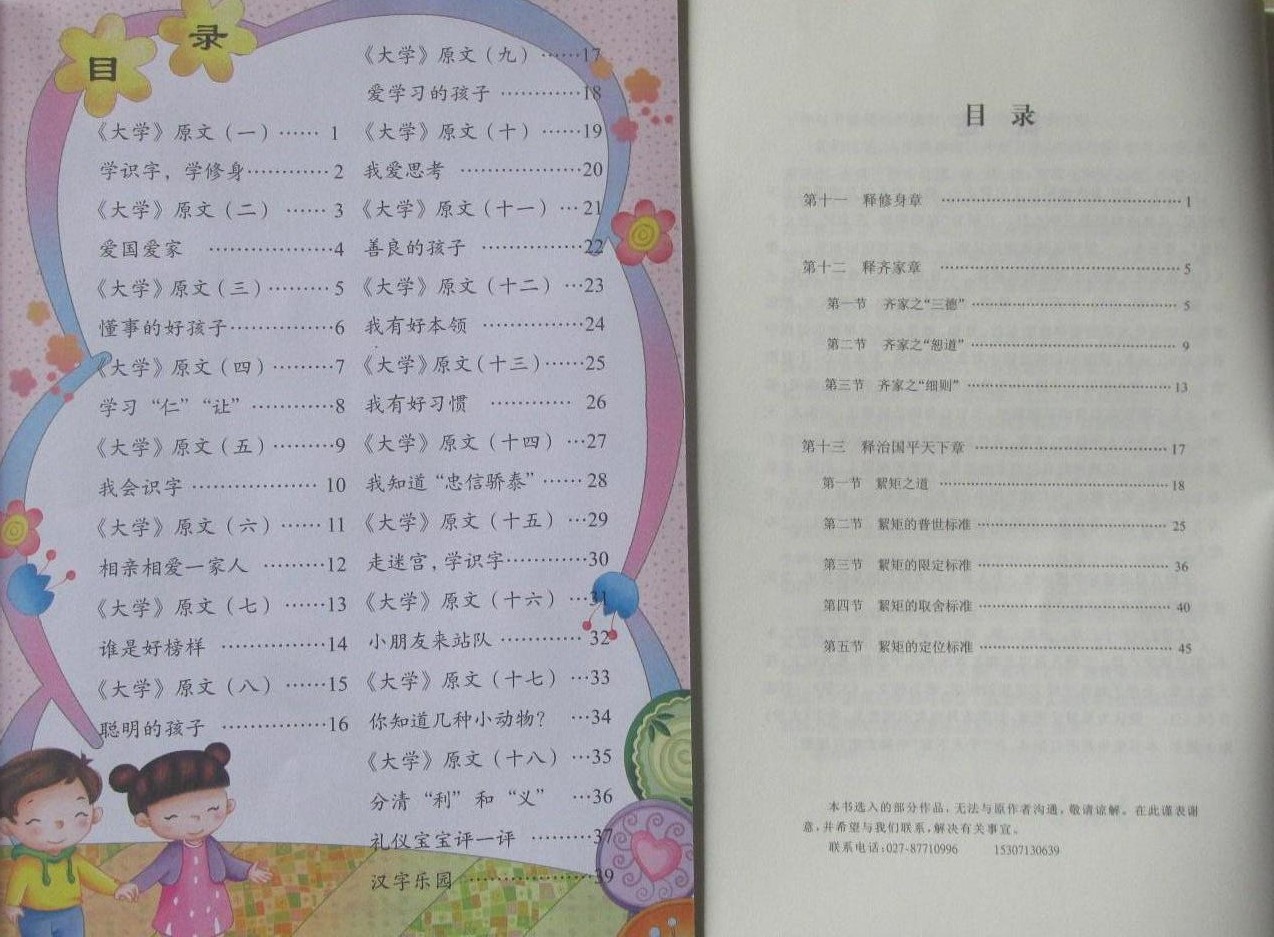 目录
《大学》原文(一)…… 1
学识字,学修身………… 2
《大学》原文(二) …… 3
爱国爱家 ………………4
《大学》原文(三)……… 5
懂事的好孩子……………6
《大学》原文(四)………7
学习“仁”“让”…………8
《大学》原文(五)………9
我会识字 ……………… 10
《大学》原文(六)…… 11
相亲相爱一家人 ………12
《大学》原文(七) ……13
谁是好榜样 ……………14
《大学》原文(八) ……15
聪明的孩子 ……………16
《大学》原文(九) ……17
爱学习的孩子 …………18
《大学》原文(十) ……19
我爱思考 ………………20
《大学》原文(十一) …21
善良的孩子 ……………22
《大学》原文(十二) …23
我有好本领 ……………24
《大学》原文(十三)……25
我有好习惯 ………… 26
《大学》原文(十四) …27
我知道“忠信骄泰”…… 28
《大学》原文(十五) …29
走迷宫,学识字…………30
《大学》原文(十六) …31
小朋友来站队 …………32
《大学》原文(十七) …33
你知道几种小动物? …34
《大学》原文(十八) …35
分清“利”和“义” …36
礼仪宝宝评一评 ………37
汉字乐园……………39
目 录
第十一 释修身章 ……………………………1
第十二 释齐家章 ……………………………5
第一节 齐家之“三德”……………………… 5
第二节 齐家之“恕道”……………………… 9
第三节 齐家之“细则”……………………… 13
第十三 释治国平天下章 ……………………… 17
第一节 絜矩之道 ……………………… 18
第二节 絜矩的普世标准 ……………………… 25
第三节 絜矩的限定标准 ……………………… 36
第四节 絜矩的取舍标准 ……………………… 40
第五节 絜矩的定位标准 ……………………… 45
本书选入的部分作品,无法与原作者沟通,敬请谅解。在此谨表谢
意,并希望与我们联系,解决有关事宜。
联系电话:027-87710996 15307130639